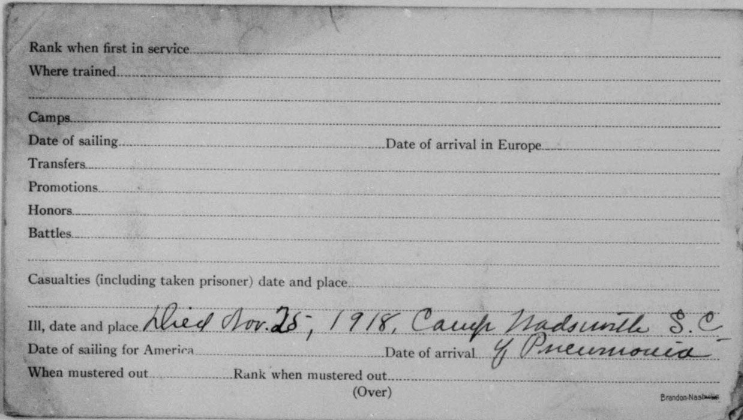 Rank when first in service
Where trained
Camps
Date of sailing Date of arrival in Europe
Transfers
Promotions
Honors
Battles
Casualties (including taken prisoner) date and place
Ill, date and place Died Nov. 25, 1918, Camp Wadsworth S.C.
Date of sailing for America Date of arrival of Pneumonia
When mustered out Rank when mustered out
(Over)